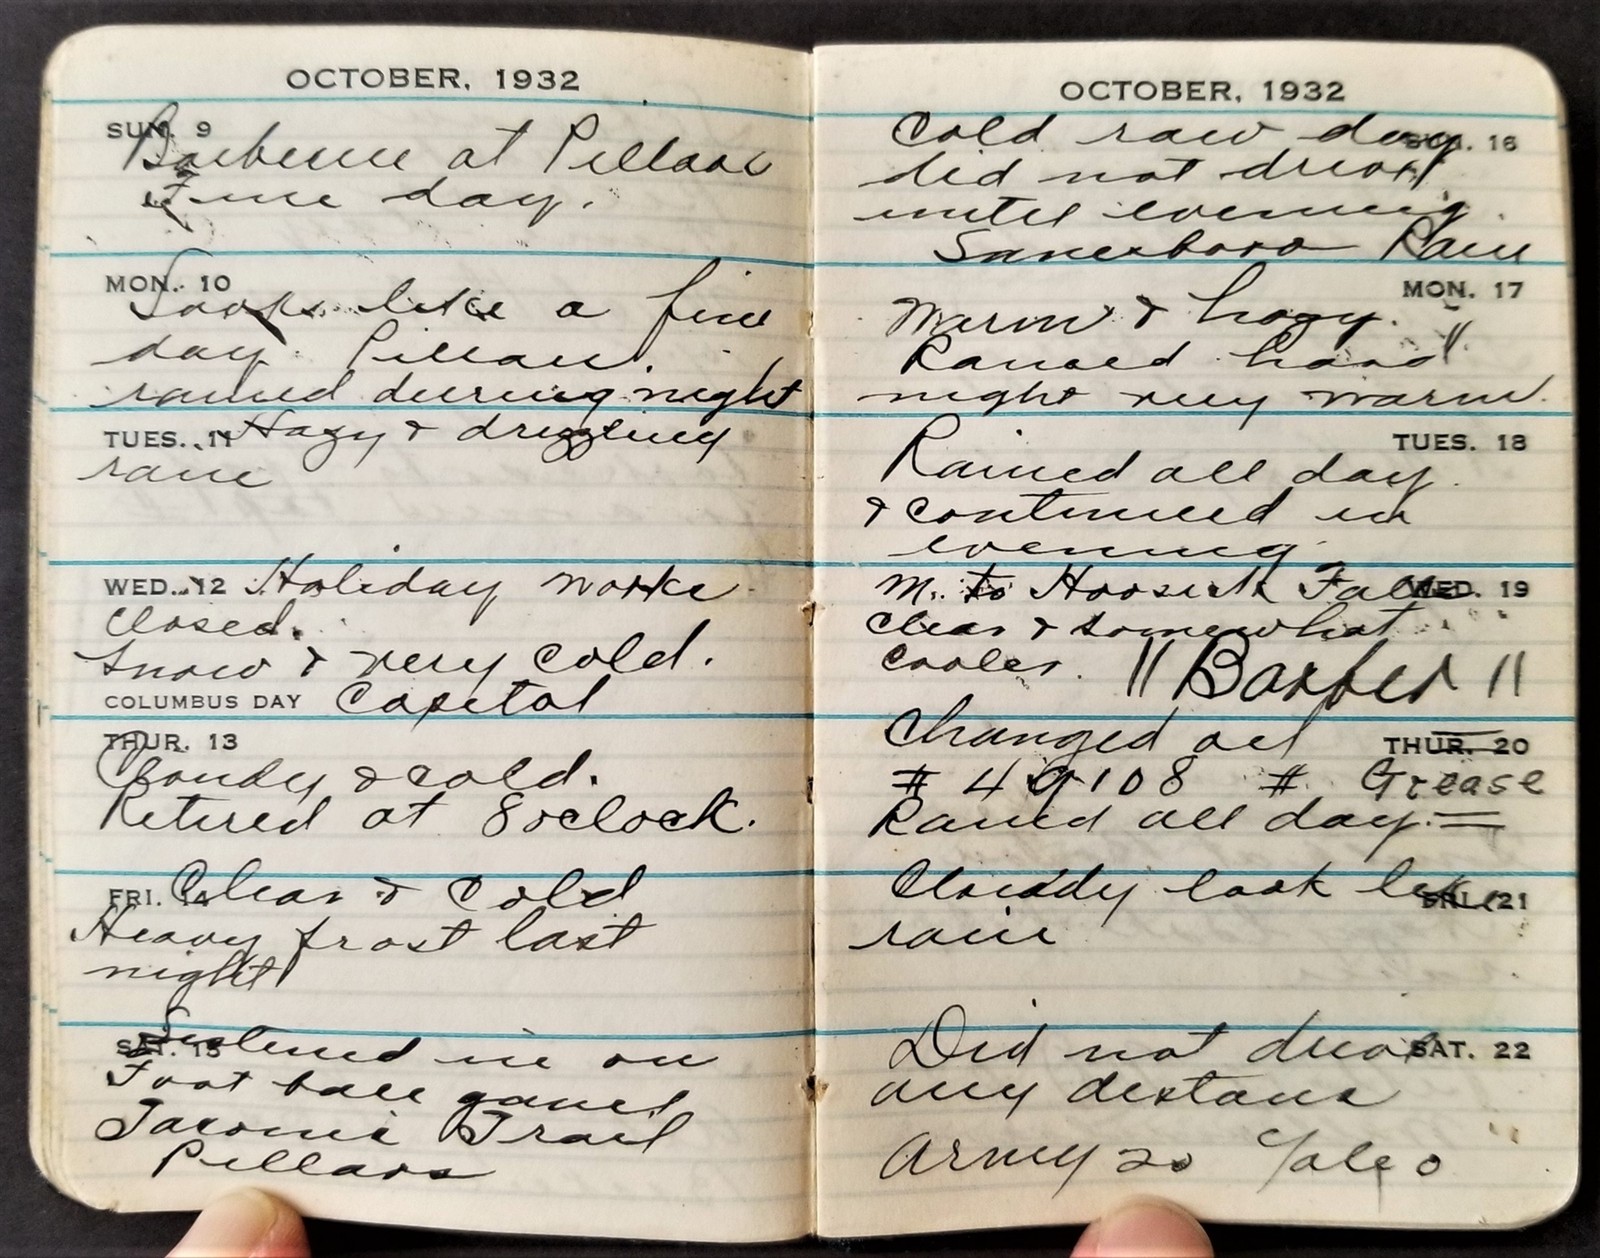 OCTOBER, 1932
SUN. 9
Barbecue at Pillars
Fine day.
MON. 10
Looks like a fine
day. Pillars.
rained during night
TUES. 11 Hazy & drizzling
rain
WED. 12 Holiday works
closed.
Snow & very cold.
COLUMBUS DAY Capitol
THUR. 13
Cloudy & cold.
Retired at 8 oclock.
FRI. 14 Clear & cold
Heavy frost last
night
SAT. 15 Listened in on
Foot ball games
Taconic Trail
Pillars
OCTOBER, 1932
Cold raw day SUN. 16
did not drive
until evening.
Rain
MON. 17
Warm & hazy.
Rained hard
night very warm.
TUES. 18
Rained all day
& continued in
evening
M. to Hoosick Falls WED. 19
Clear & somewhat
cooler. "Barber"
Changed oil THUR. 20
# 49108 # Grease
Rained all day. =
Cloudy look like FRI. 21
rain
Did not drive SAT. 22
any distanc
Army 20 Yale 0